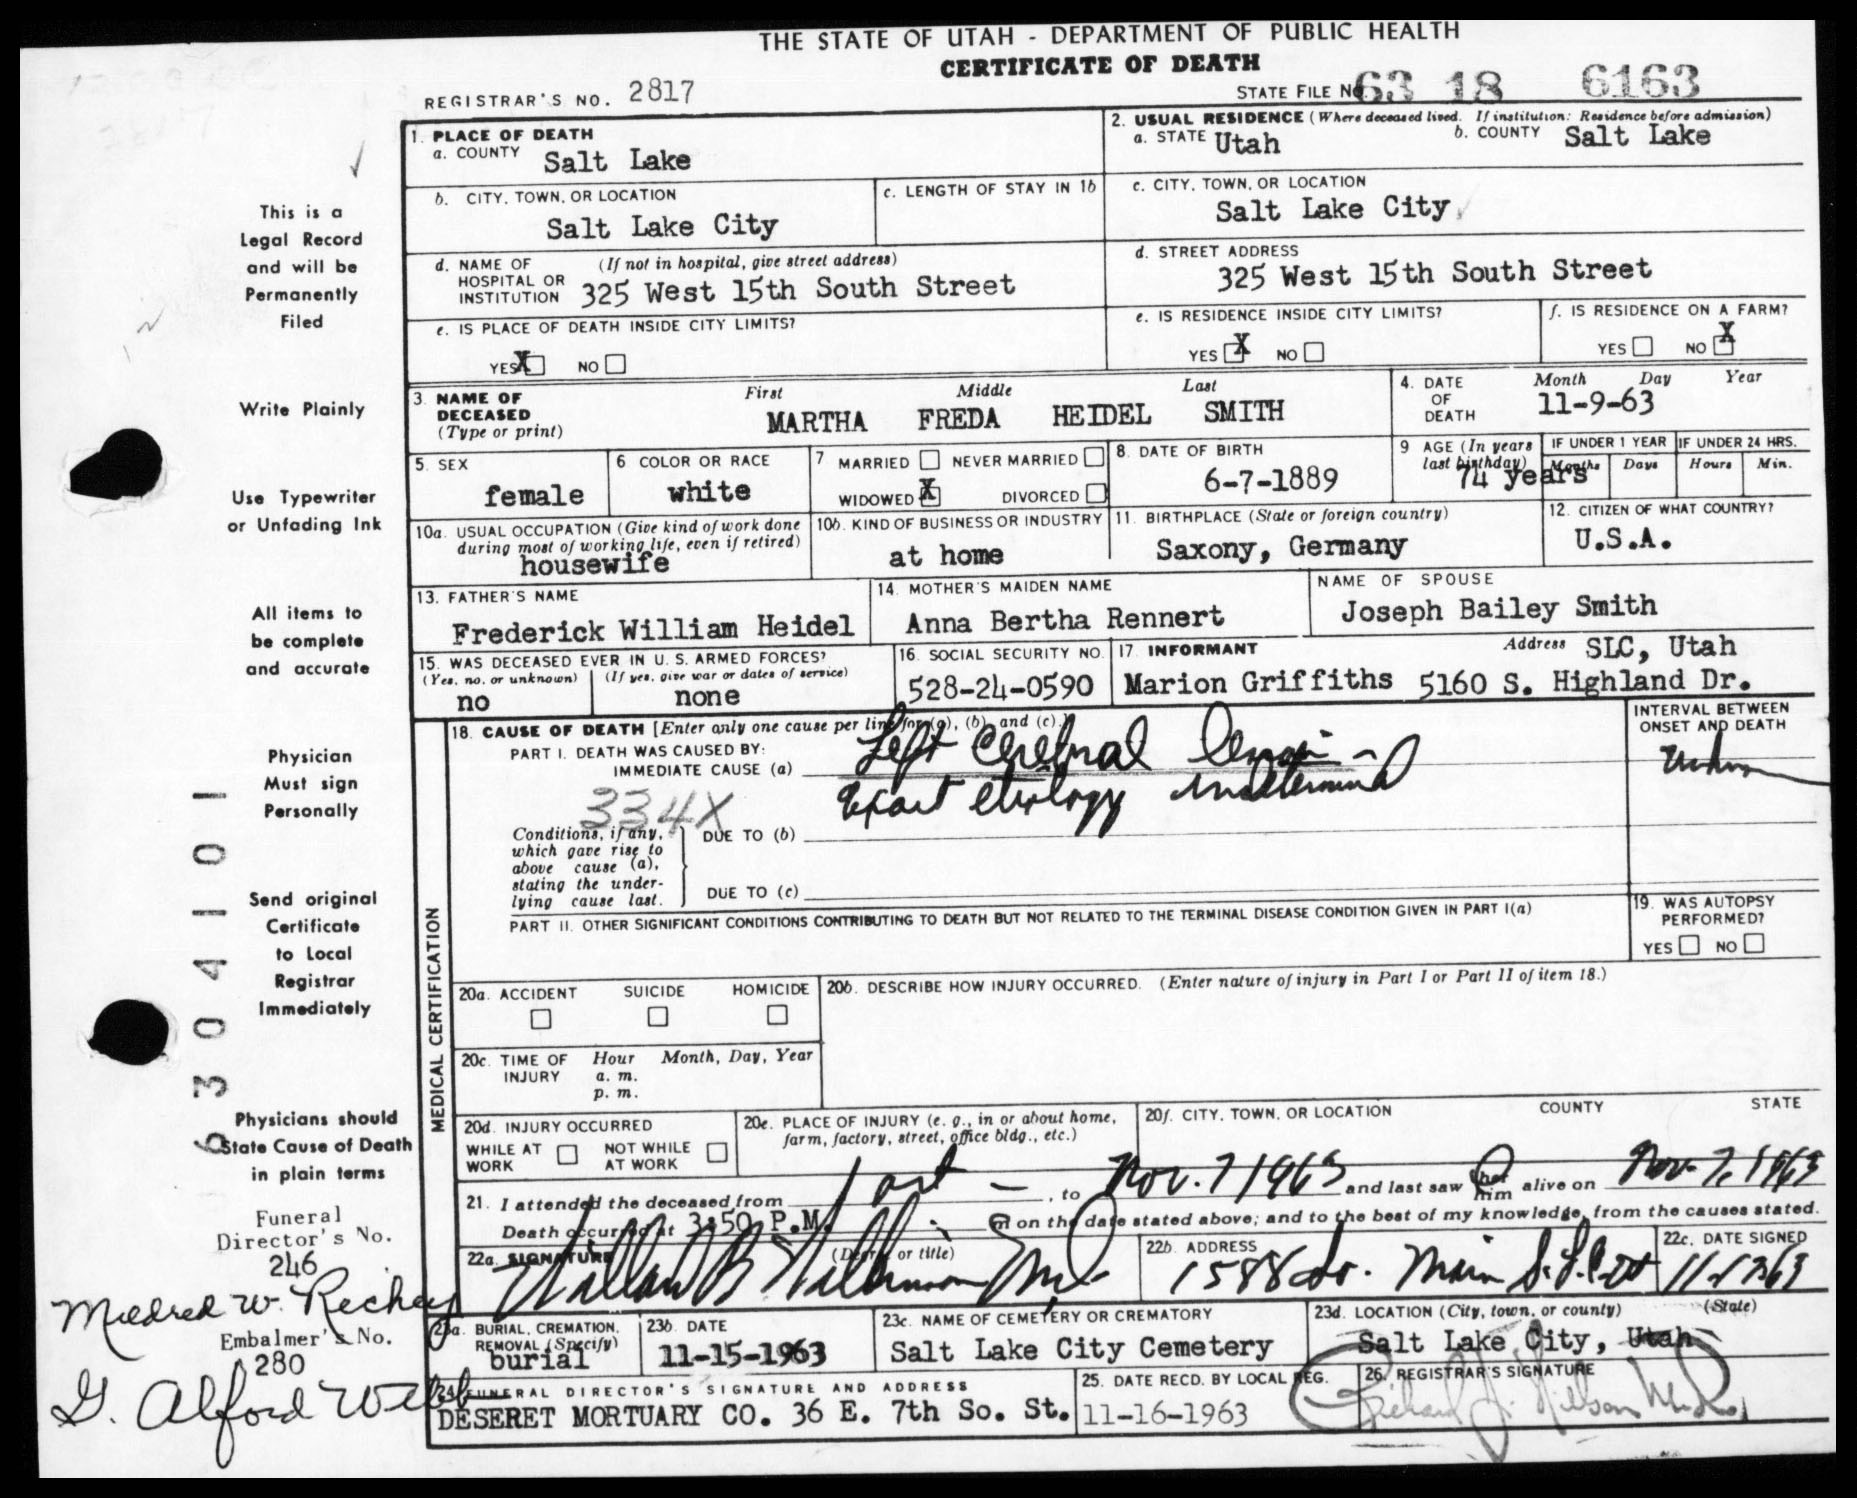 THE STATE OF UTAH - DEPARTMENT OF PUBLIC HEALTH
CERTIFICATE OF DEATH
REGISTRAR'S NO. 2817
STATE FILE NO. 63 18 6163
1. PLACE OF DEATH
a. COUNTY Salt Lake
2. USUAL RESIDENCE (Where deceased lived. If institution: Residence before admission)
a. STATE Utah b. COUNTY Salt Lake
b. CITY, TOWN, OR LOCATION
Salt Lake City
c. LENGTH OF STAY IN 1b
c. CITY, TOWN, OR LOCATION
Salt Lake City
d. NAME OF HOSPITAL OR INSTITUTION (If not in hospital, give street address)
325 West 15th South Street
d. STREET ADDRESS
325 West 15th South Street
e. IS PLACE OF DEATH INSIDE CITY LIMITS?
YES X NO
e. IS RESIDENCE INSIDE CITY LIMITS?
YES X NO
f. IS RESIDENCE ON A FARM?
YES NO X
3. NAME OF DECEASED (Type or print)
First Middle Last
MARTHA FREDA HEIDEL SMITH
4. DATE OF DEATH
Month Day Year
11-9-63
5. SEX
female
6 COLOR OR RACE
white
7 MARRIED NEVER MARRIED
WIDOWED X DIVORCED
8. DATE OF BIRTH
6-7-1889
9 AGE (In years last birthday)
74 years
IF UNDER 1 YEAR
Months Days
IF UNDER 24 HRS.
Hours Min.
10a. USUAL OCCUPATION (Give kind of work done during most of working life, even if retired)
housewife
10b. KIND OF BUSINESS OR INDUSTRY
at home
11. BIRTHPLACE (State or foreign country)
Saxony, Germany
12. CITIZEN OF WHAT COUNTRY?
U.S.A.
13. FATHER'S NAME
Frederick William Heidel
14. MOTHER'S MAIDEN NAME
Anna Bertha Rennert
NAME OF SPOUSE
Joseph Bailey Smith
15. WAS DECEASED EVER IN U. S. ARMED FORCES?
(Yes, no, or unknown) (If yes, give war or dates of service)
no none
16. SOCIAL SECURITY NO.
528-24-0590
17. INFORMANT Address SLC, Utah
Marion Griffiths 5160 S. Highland Dr.
18. CAUSE OF DEATH [Enter only one cause per line for (a), (b), and (c).]
INTERVAL BETWEEN ONSET AND DEATH
PART I. DEATH WAS CAUSED BY:
IMMEDIATE CAUSE (a) Left Cerebral
Exact etiology undetermined
334X
Conditions, if any, which gave rise to above cause (a), stating the underlying cause last.
DUE TO (b)
DUE TO (c)
PART II. OTHER SIGNIFICANT CONDITIONS CONTRIBUTING TO DEATH BUT NOT RELATED TO THE TERMINAL DISEASE CONDITION GIVEN IN PART I(a)
19. WAS AUTOPSY PERFORMED?
YES NO
MEDICAL CERTIFICATION
20a. ACCIDENT SUICIDE HOMICIDE
20b. DESCRIBE HOW INJURY OCCURRED. (Enter nature of injury in Part I or Part II of item 18.)
20c. TIME OF INJURY
Hour Month, Day, Year
a. m.
p. m.
20d. INJURY OCCURRED
WHILE AT WORK NOT WHILE AT WORK
20e. PLACE OF INJURY (e. g., in or about home, farm, factory, street, office bldg., etc.)
20f. CITY, TOWN, OR LOCATION COUNTY STATE
21. I attended the deceased from , to Nov. 7 1963 and last saw her him alive on Nov. 7, 1963
Death occurred at 3:50 P.M. m on the date stated above; and to the best of my knowledge, from the causes stated.
22a. SIGNATURE (Degree or title)
22b. ADDRESS
1588 So. Main
22c. DATE SIGNED
23a. BURIAL, CREMATION, REMOVAL (Specify)
burial
23b. DATE
11-15-1963
23c. NAME OF CEMETERY OR CREMATORY
Salt Lake City Cemetery
23d. LOCATION (City, town, or county) (State)
Salt Lake City, Utah
24. FUNERAL DIRECTOR'S SIGNATURE AND ADDRESS
DESERET MORTUARY CO. 36 E. 7th So. St.
25. DATE RECD. BY LOCAL REG.
11-16-1963
26. REGISTRAR'S SIGNATURE
This is a
Legal Record
and will be
Permanently
Filed
Write Plainly
Use Typewriter
or Unfading Ink
All items to
be complete
and accurate
Physician
Must sign
Personally
Send original
Certificate
to Local
Registrar
Immediately
Physicians should
State Cause of Death
in plain terms
6304101
Funeral
Director's No.
246
Mildred W.
Embalmer's No.
280
G. Alford Webb